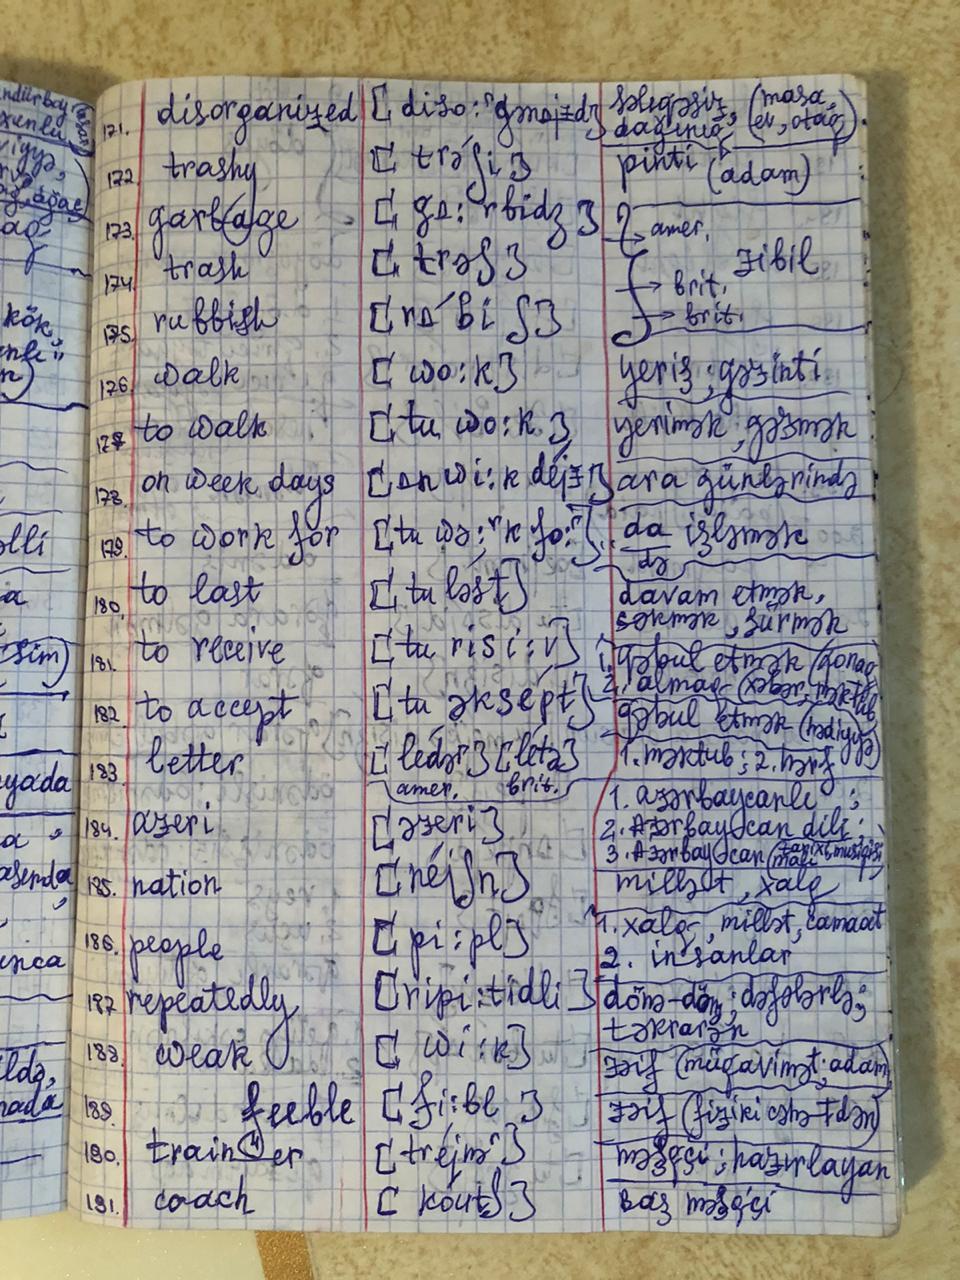 171. disorganized [diso:ʳgənajzd] səliqəsiz, (masa,
dağınıq, ev, otaq)
172. trashy [trəʃi] pinti (adam)
173. garbage [gɑ:rbidʒ] → amer.
174. trash [trəʃ] → brit. zibil
175. rubbish [rʌbiʃ] → brit.
176. walk [wo:k] yeriş; gəzinti
177. to walk [tu wo:k] yerimək; gəzmək
178. on week days [ɑn wi:k dejz] ara günlərində
179. to work for [tu wə:ʳk fo:ʳ] da işləmək
də
180. to last [tu ləst] davam etmək,
səkmək, sürmək
181. to receive [tu risi:v] 1. qəbul etmək (qonaq)
2. almaq (xəbər, məktub)
182. to accept [tu əksept] qəbul etmək (hədiyyə)
183. letter [ledər] [letə] 1. məktub; 2. hərf
amer. brit.
184. azeri [əzeri] 1. azərbaycanlı;
2. Azərbaycan dili;
3. Azərbaycan (tarixi, musiqisi,
malı
185. nation [nejʃn] millət, xalq
186. people [pi:pl] 1. xalq, millət, camaat
2. insanlar
187. repeatedly [ripi:tidli] dönə-dönə; dəfələrlə;
təkrarən
188. weak [wi:k] zəif (müqavimət; adam)
189. feeble [fi:bl] zəif (fiziki cəhətdən)
190. trainer [trejnə] məşqçi; hazırlayan
191. coach [koutʃ] baş məşqçi
kök,
olli
a
(isim)
yada
a
enca
ildə,
nada